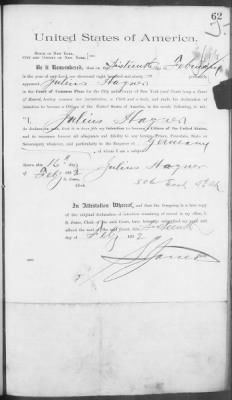 62
United States of America.
STATE OF NEW YORK,
CITY AND COUNTY OF NEW YORK, } ss.:
Be it Remembered, that on the Sixteenth day of February
in the year of our Lord, one thousand eight hundred and ninety personally
appeared Julius Hagner
in the Court of Common Pleas for the City and County of New York (said Court being a Court
of Record, having common law jurisdiction, a Clerk and a Seal), and made his declaration of
Intention to become a Citizen of the United States of America, in the words following, to wit:
"I, Julius Hagner
do declare on oath, that it is bona fide my intention to become a Citizen of the United States,
and to renounce forever all allegiance and fidelity to any foreign Prince, Potentate, State or
Sovereignty whatever, and particularly to the Emperor of Germany
of whom I am a subject
Sworn this 16th day
of Feby 1892
Julius Hagner
Clerk.
In Attestation Whereof, and that the foregoing is a true copy
of the original declaration of intention remaining of record in my office, I,
Clerk of the said Court, have hereunto subscribed my name and
affixed the seal of the said Court, this Sixteenth
day of Feby 1892